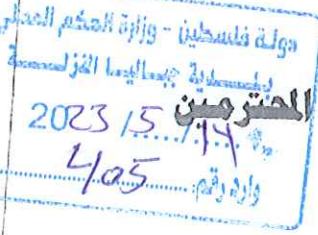 دولة فلسطين - وزارة الحكم المحلي
بلدية جباليا النزلة
المحترمين
2023 / 5 / 14
وارد رقم: 405